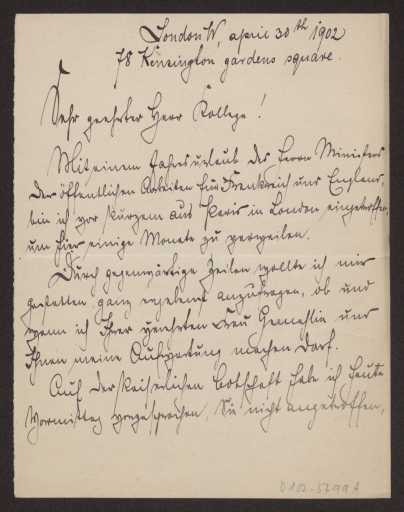 London W, april 30th 1902
78 Kensington gardens square.
Sehr geehrter Herr Kollege!
Mit einem Jahresurlaub des Herrn Ministers
der öffentlichen Arbeiten für Frankreich und England,
bin ich vor kurzem aus Paris in London eingetroffen,
um hier einige Monate zu verweilen.
Durch gegenwärtige Zeilen wollte ich mir
gestatten ganz ergebenst anzufragen, ob und
wann ich Ihrer verehrten Frau Gemahlin und
Ihnen meine Aufwartung machen darf.
Auf der Kaiserlichen Botschaft habe ich heute
Vormittag vorgesprochen, Sie nicht angetroffen,